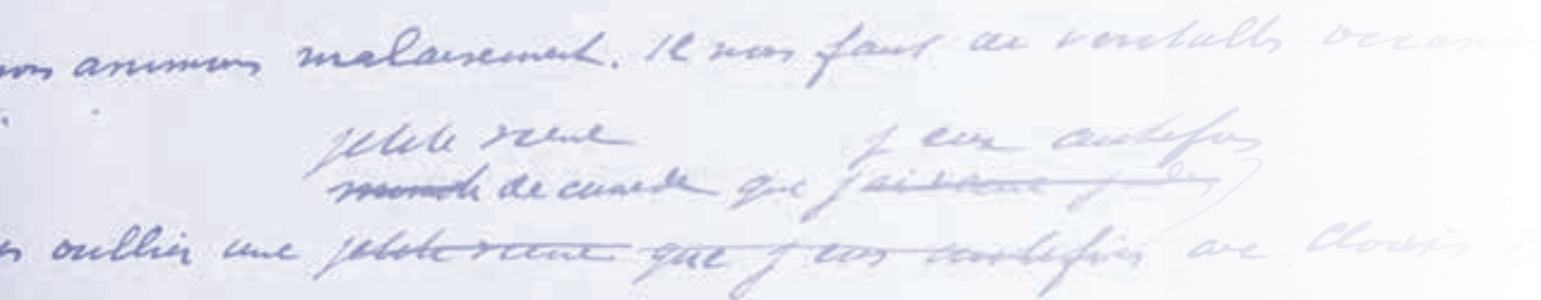 nous animons malaisement. Il nous faut de veritables occasions
petite scene j eus autrefois
de comedie que j'ai
oublier une petite scene que j eus autrefois avec Clovis